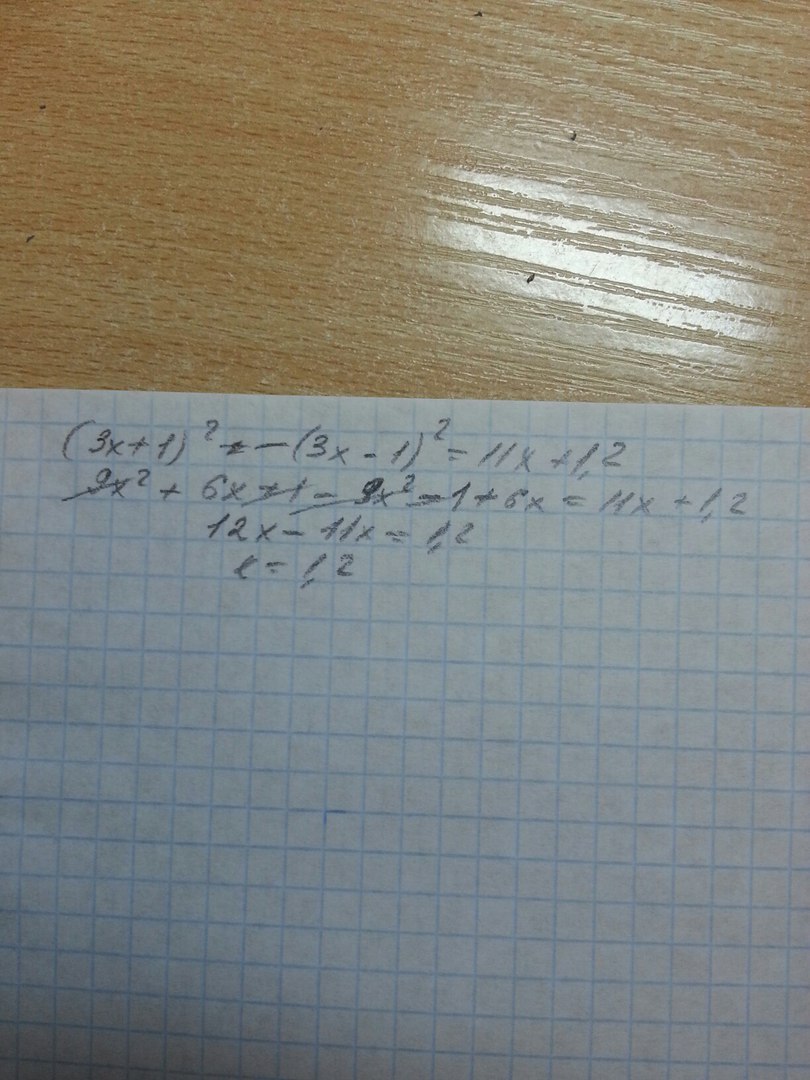 (3x+1)² - (3x-1)² = 11x+1,2
9x² + 6x+1 - 9x² - 1+6x = 11x+1,2
12x - 11x = 1,2
x = 1,2